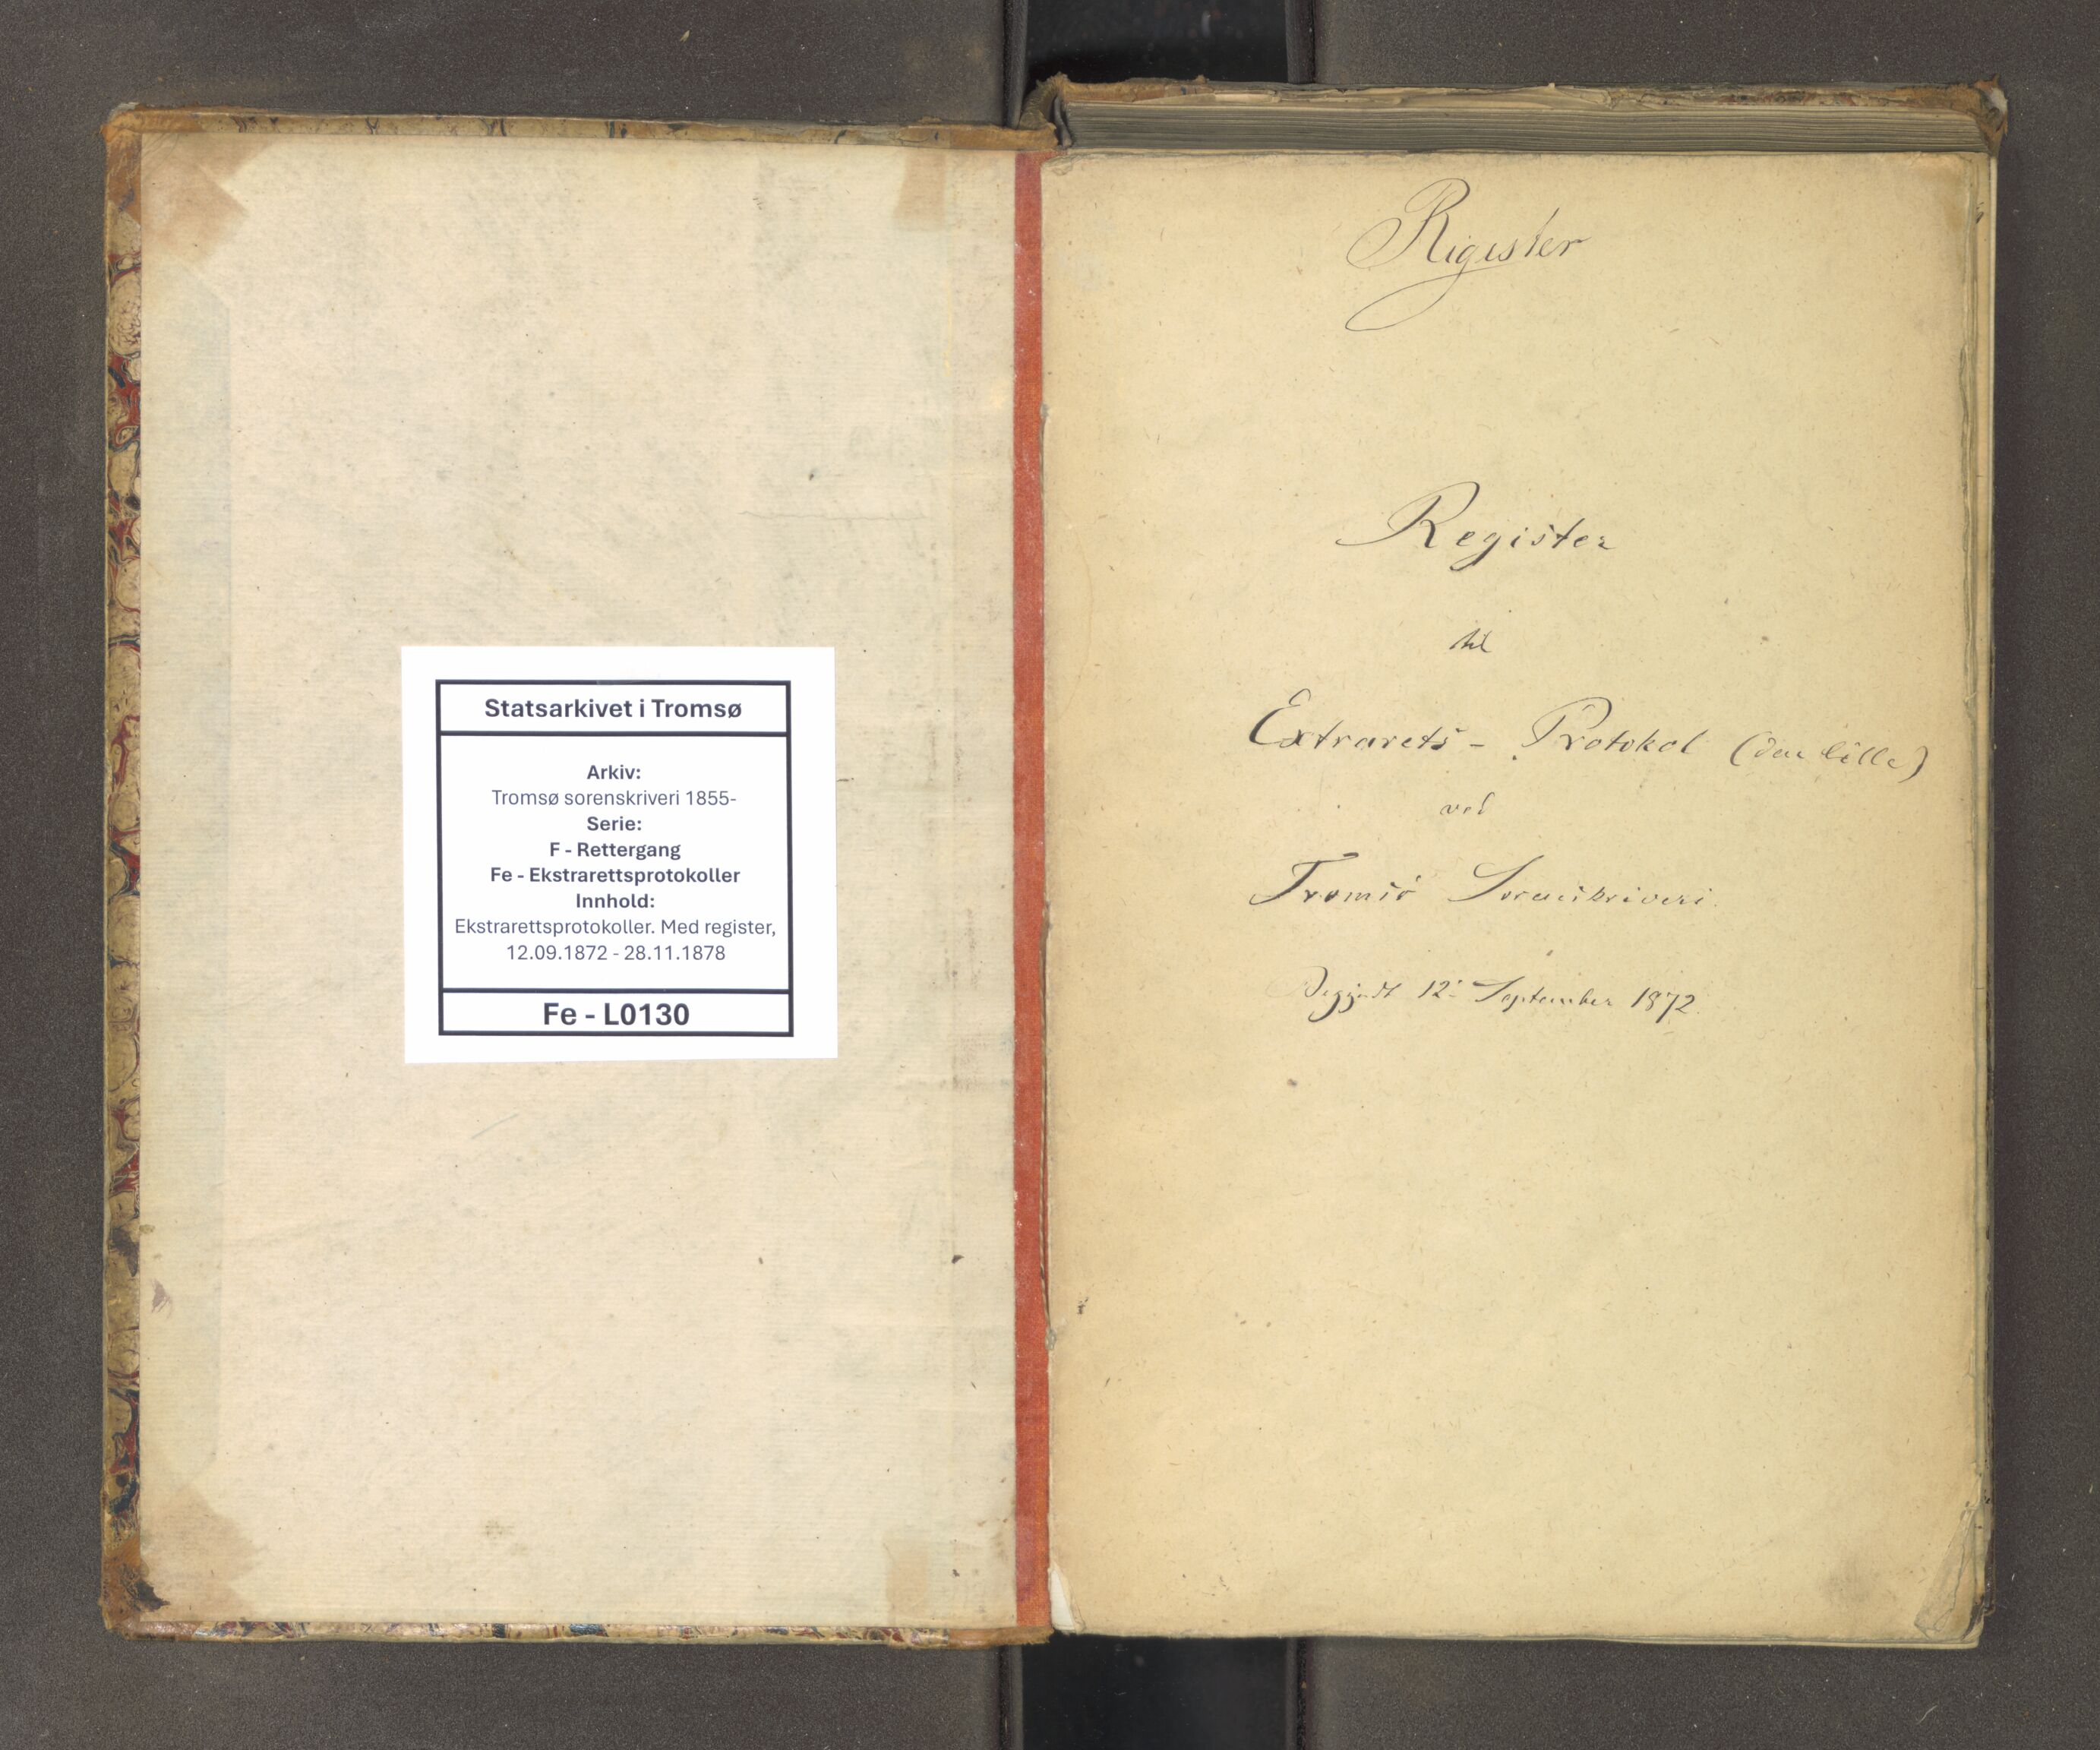 Statsarkivet i Tromsø
Arkiv:
Tromsø sorenskriveri 1855-
Serie:
F - Rettergang
Fe - Ekstrarettsprotokoller
Innhold:
Ekstrarettsprotokoller. Med register,
12.09.1872 - 28.11.1878
Fe - L0130
Register
Register
til
Extrarets - Protokol (den lille)
ved
Tromsö Sorenskriveri.
Begyndt 12' September 1872.